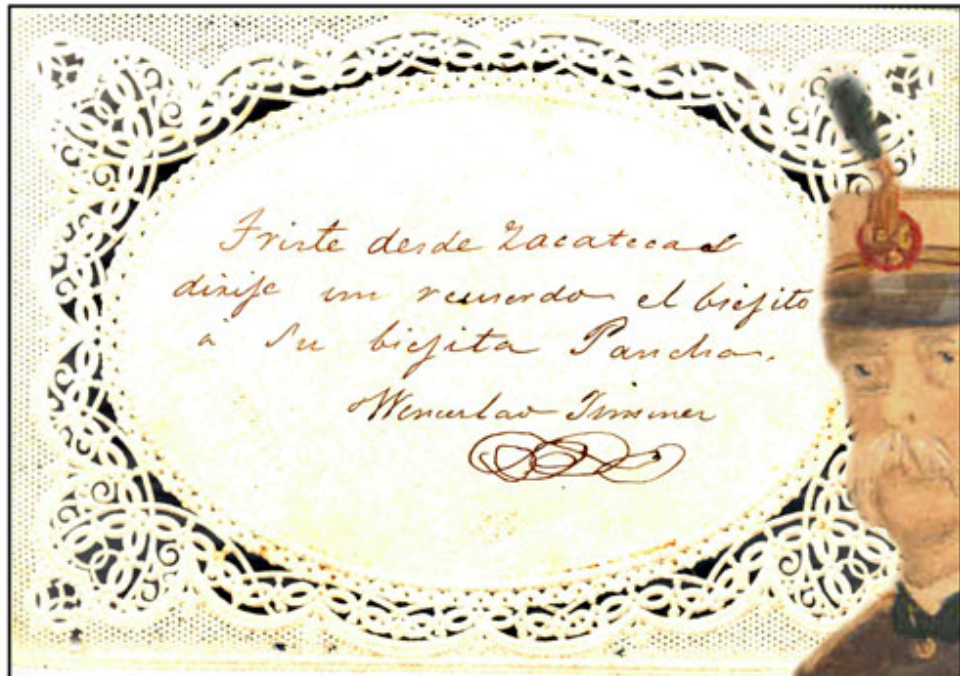 Triste desde Zacatecas
dirije un recuerdo el biejito
á Su biejita Pancha.
Wenceslao Jimenez